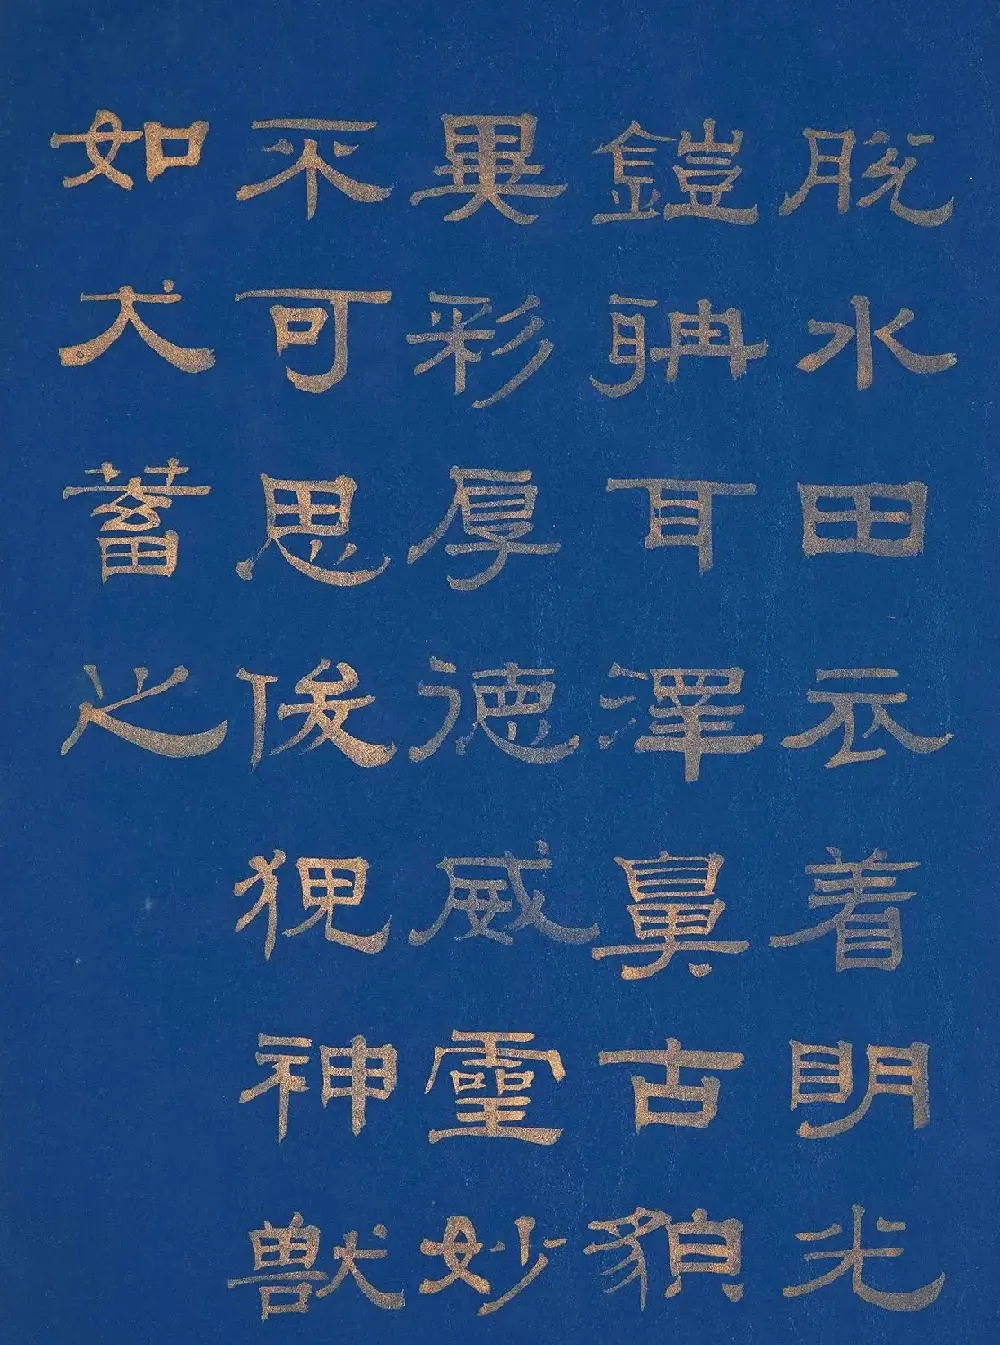 脱水田衣着明光
鎧聃耳澤鼻古貌
異彩厚德威靈妙
不可思俊猊神獸
如犬蓄之